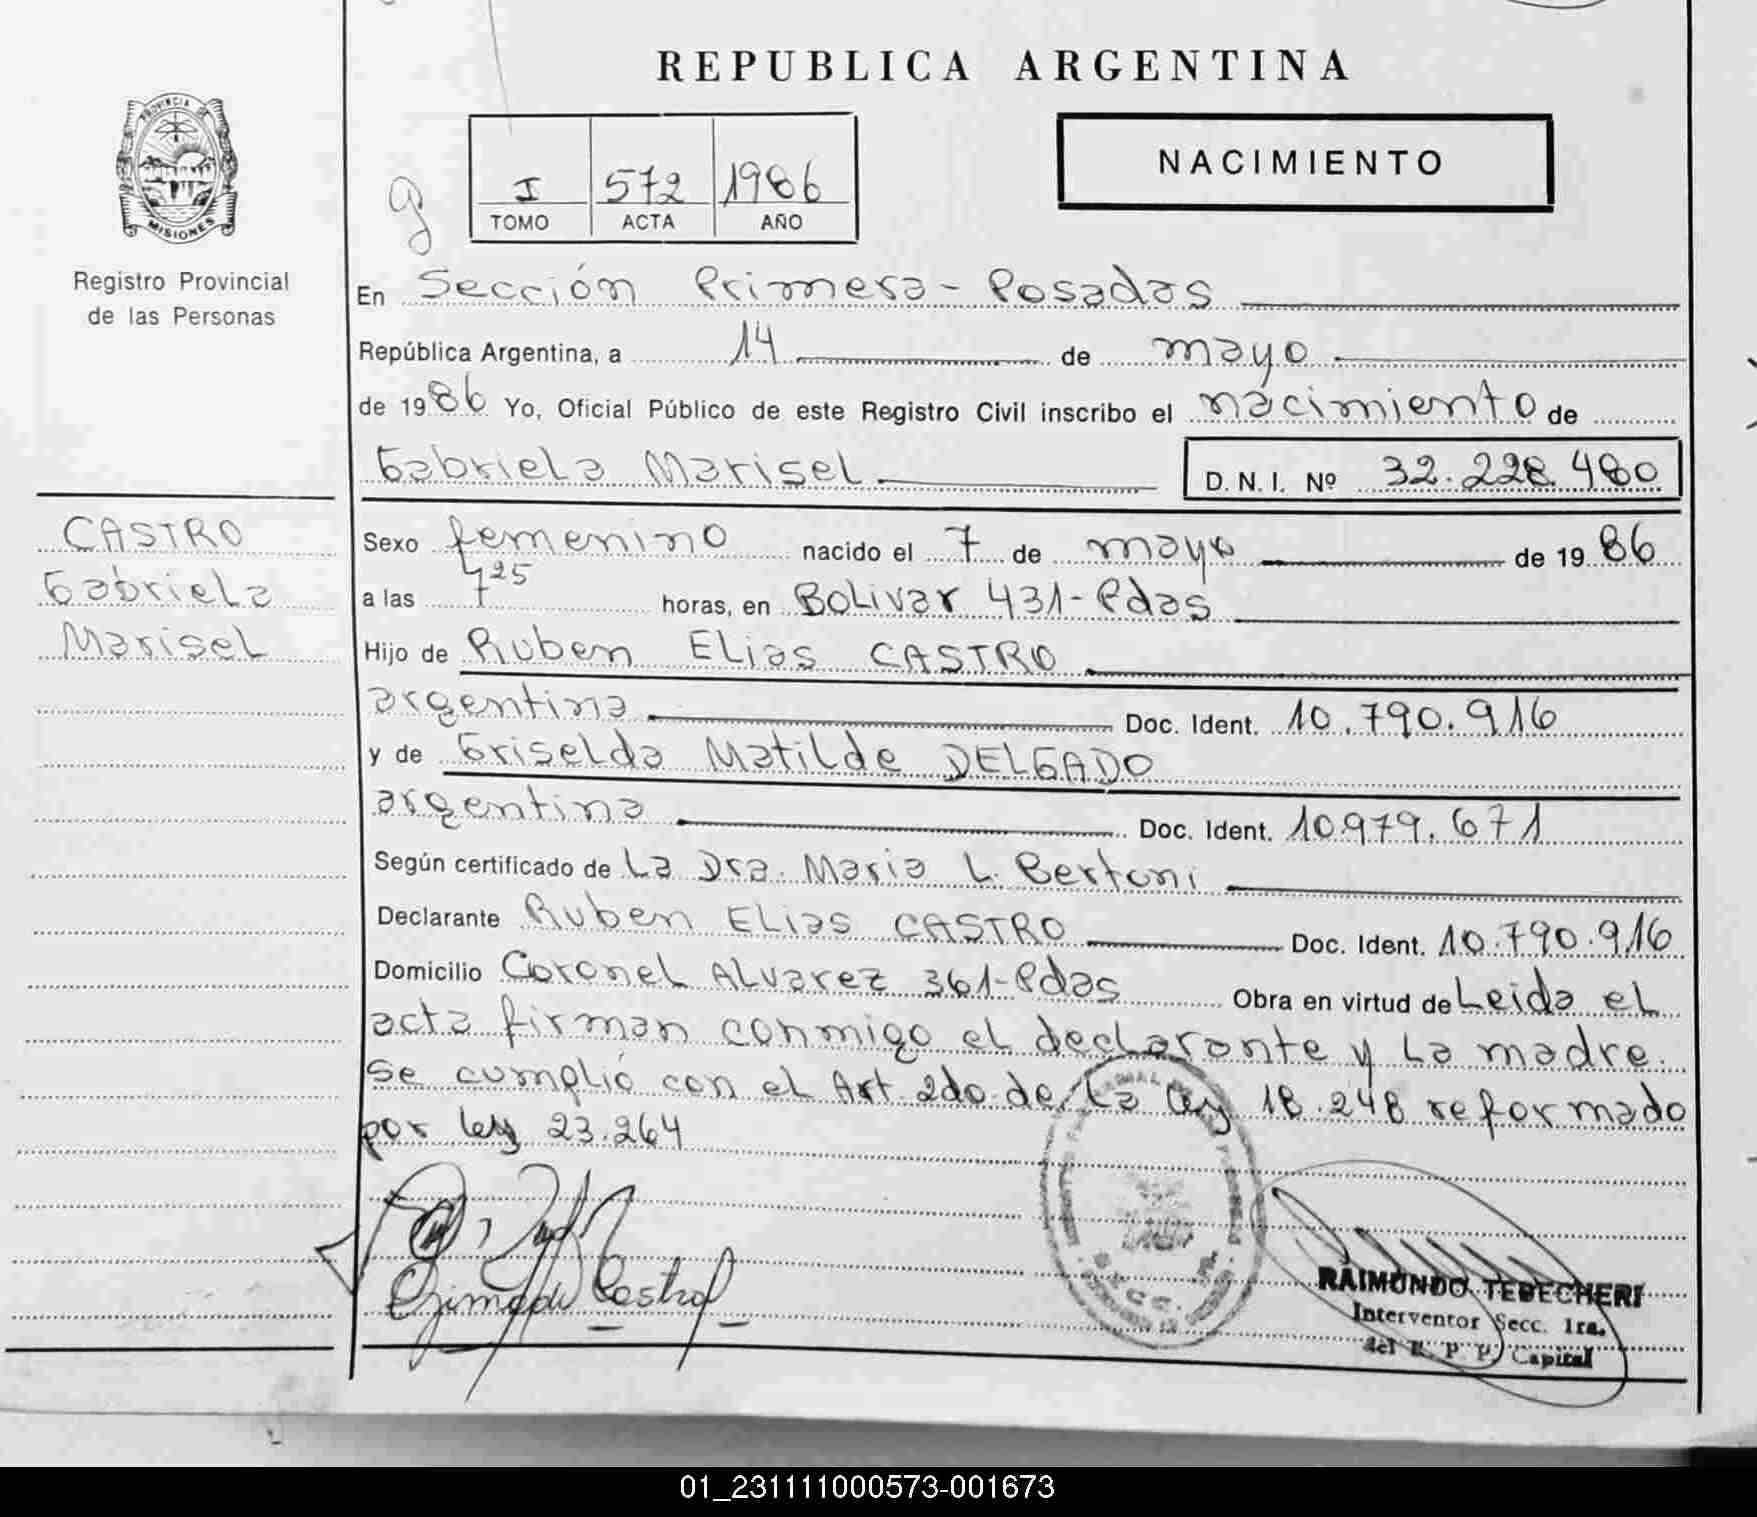 REPUBLICA ARGENTINA
PROVINCIA DE
MISIONES
Registro Provincial
de las Personas
I 572 1986
TOMO ACTA AÑO
NACIMIENTO
En Sección Primera - Posadas
República Argentina, a 14 de mayo
de 1986 Yo, Oficial Público de este Registro Civil inscribo el nacimiento de
Gabriela Marisel
D. N. I. Nº 32.228.480
CASTRO
Gabriela
Marisel
Sexo femenino nacido el 7 de mayo de 1986
a las 7 25 horas, en Bolivar 431-Pdas
Hijo de Ruben Elias CASTRO
argentina Doc. Ident. 10.790.916
y de Griselda Matilde DELGADO
argentina Doc. Ident. 10.979.671
Según certificado de La Dra. Maria L. Bertoni
Declarante Ruben Elias CASTRO Doc. Ident. 10.790.916
Domicilio Coronel Alvarez 361-Pdas Obra en virtud de Leida el
acta firman conmigo el declarante y la madre.
Se cumplió con el Art. 2do. de la ley 18.248 reformado
por ley 23.264
RAIMUNDO TEBECHERI
Interventor Secc. 1ra.
del R. P. P. Capital
01_231111000573-001673